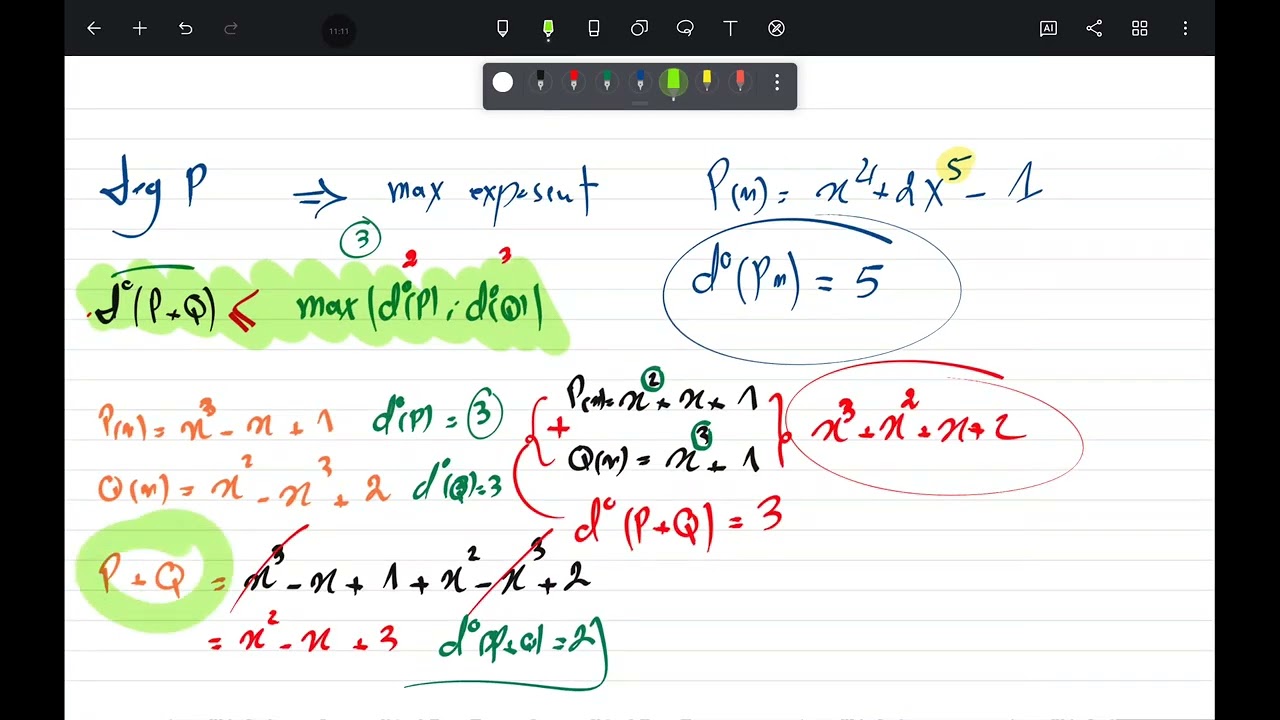 11:11
AI
T
deg P ⇒ max exposent P(n) = x⁴ + 2x⁵ - 1
d°(Pn) = 5
3
2 3
d°(P+Q) ≤ max(d°(P) ; d°(Q))
P(n) = x³ - x + 1 d°(P) = 3
Q(n) = x² - x³ + 2 d°(Q) = 3
P(n) = x² + x + 1
+
Q(n) = x³ + 1
x³ + x² + x + 2
d°(P+Q) = 3
P+Q = x³ - x + 1 + x² - x³ + 2
= x² - x + 3 d°(P+Q) = 2